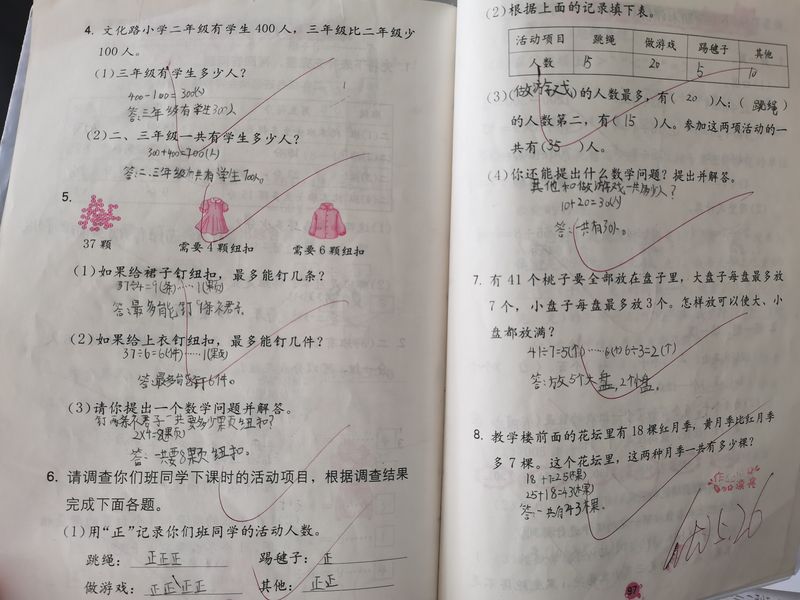 4. 文化路小学二年级有学生400人，三年级比二年级少
100人。
(1)三年级有学生多少人？
400-100=300(人)
答:三年级有学生300人
(2)二、三年级一共有学生多少人？
300+400=700(人)
答:二、三年级一共有学生700人。
5.
37颗 需要4颗纽扣 需要6颗纽扣
(1)如果给裙子钉纽扣，最多能钉几条？
37÷4=9(条)……1(颗)
答:最多能钉9条裙子.
(2)如果给上衣钉纽扣，最多能钉几件？
37÷6=6(件)……1(颗)
答:最多能钉6件。
(3)请你提出一个数学问题并解答。
钉两条裙子一共要多少颗纽扣？
2×4=8(颗)
答:一共要8颗纽扣.
6. 请调查你们班同学下课时的活动项目，根据调查结果
完成下面各题。
(1)用“正”记录你们班同学的活动人数。
跳绳: 正正正 踢毽子: 正
做游戏: 正正正正 其他: 正正
(2)根据上面的记录填下表。
活动项目 跳绳 做游戏 踢毽子 其他
人数 15 20 5 10
(3)(做游戏)的人数最多，有( 20 )人；(跳绳)
的人数第二，有( 15 )人。参加这两项活动的一
共有( 35 )人。
(4)你还能提出什么数学问题？提出并解答。
其他和做游戏一共多少人？
10+20=30(人)
答:一共有30人。
7. 有41个桃子要全部放在盘子里，大盘子每盘最多放
7个，小盘子每盘最多放3个。怎样放可以使大、小
盘都放满？
41÷7=5(个)……6(个) 6÷3=2(个)
答:放5个大盘,2个小盘.
8. 教学楼前面的花坛里有18棵红月季，黄月季比红月季
多7棵。这个花坛里，这两种月季一共有多少棵？
18+7=25(棵)
25+18=43(棵)
答:一共有43棵.
5.26
97